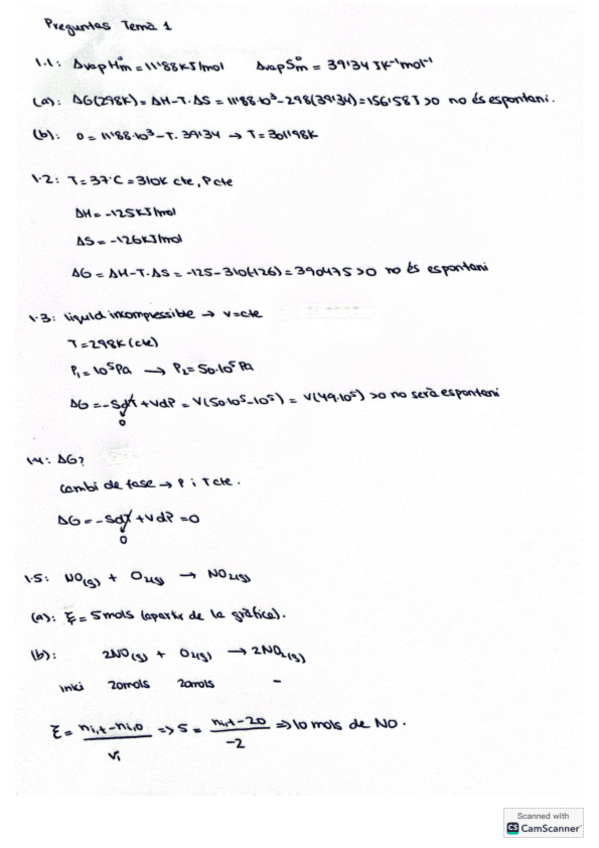 Preguntas Tema 1
1.1: ΔvapH°m = 11'88 KJ/mol ΔvapS°m = 39'34 JK⁻¹mol⁻¹
(a): ΔG(298K) = ΔH-T·ΔS = 11'88·10³-298(39'34) = 156'58J >0 no és espontani.
(b): 0 = 11'88·10³-T·39'34 → T = 301'98K
1.2: T = 37°C = 310K cte, Pcte
ΔH = -125KJ/mol
ΔS = -126KJ/mol
ΔG = ΔH-T·ΔS = -125-310(-126) = 390475 >0 no és espontani
1.3: líquid incompressible → V=cte
T = 298K (cte)
P₁ = 10⁵Pa → P₂ = 50·10⁵Pa
ΔG = -SdT + VdP = V(50·10⁵-10⁵) = V(49·10⁵) >0 no serà espontani
0
1.4: ΔG?
Cambi de fase → P i T cte.
ΔG = -SdT + VdP = 0
0
1.5: NO(g) + O₂(g) → NO₂(g)
(a): ξ = 5mols (apartir de la gràfica).
(b): 2NO(g) + O₂(g) → 2NO₂(g)
inici 20mols 20mols -
ξ = ni,t-ni,0 / νi => 5 = ni,t-20 / -2 => 10 mols de NO.
Scanned with
CS CamScanner